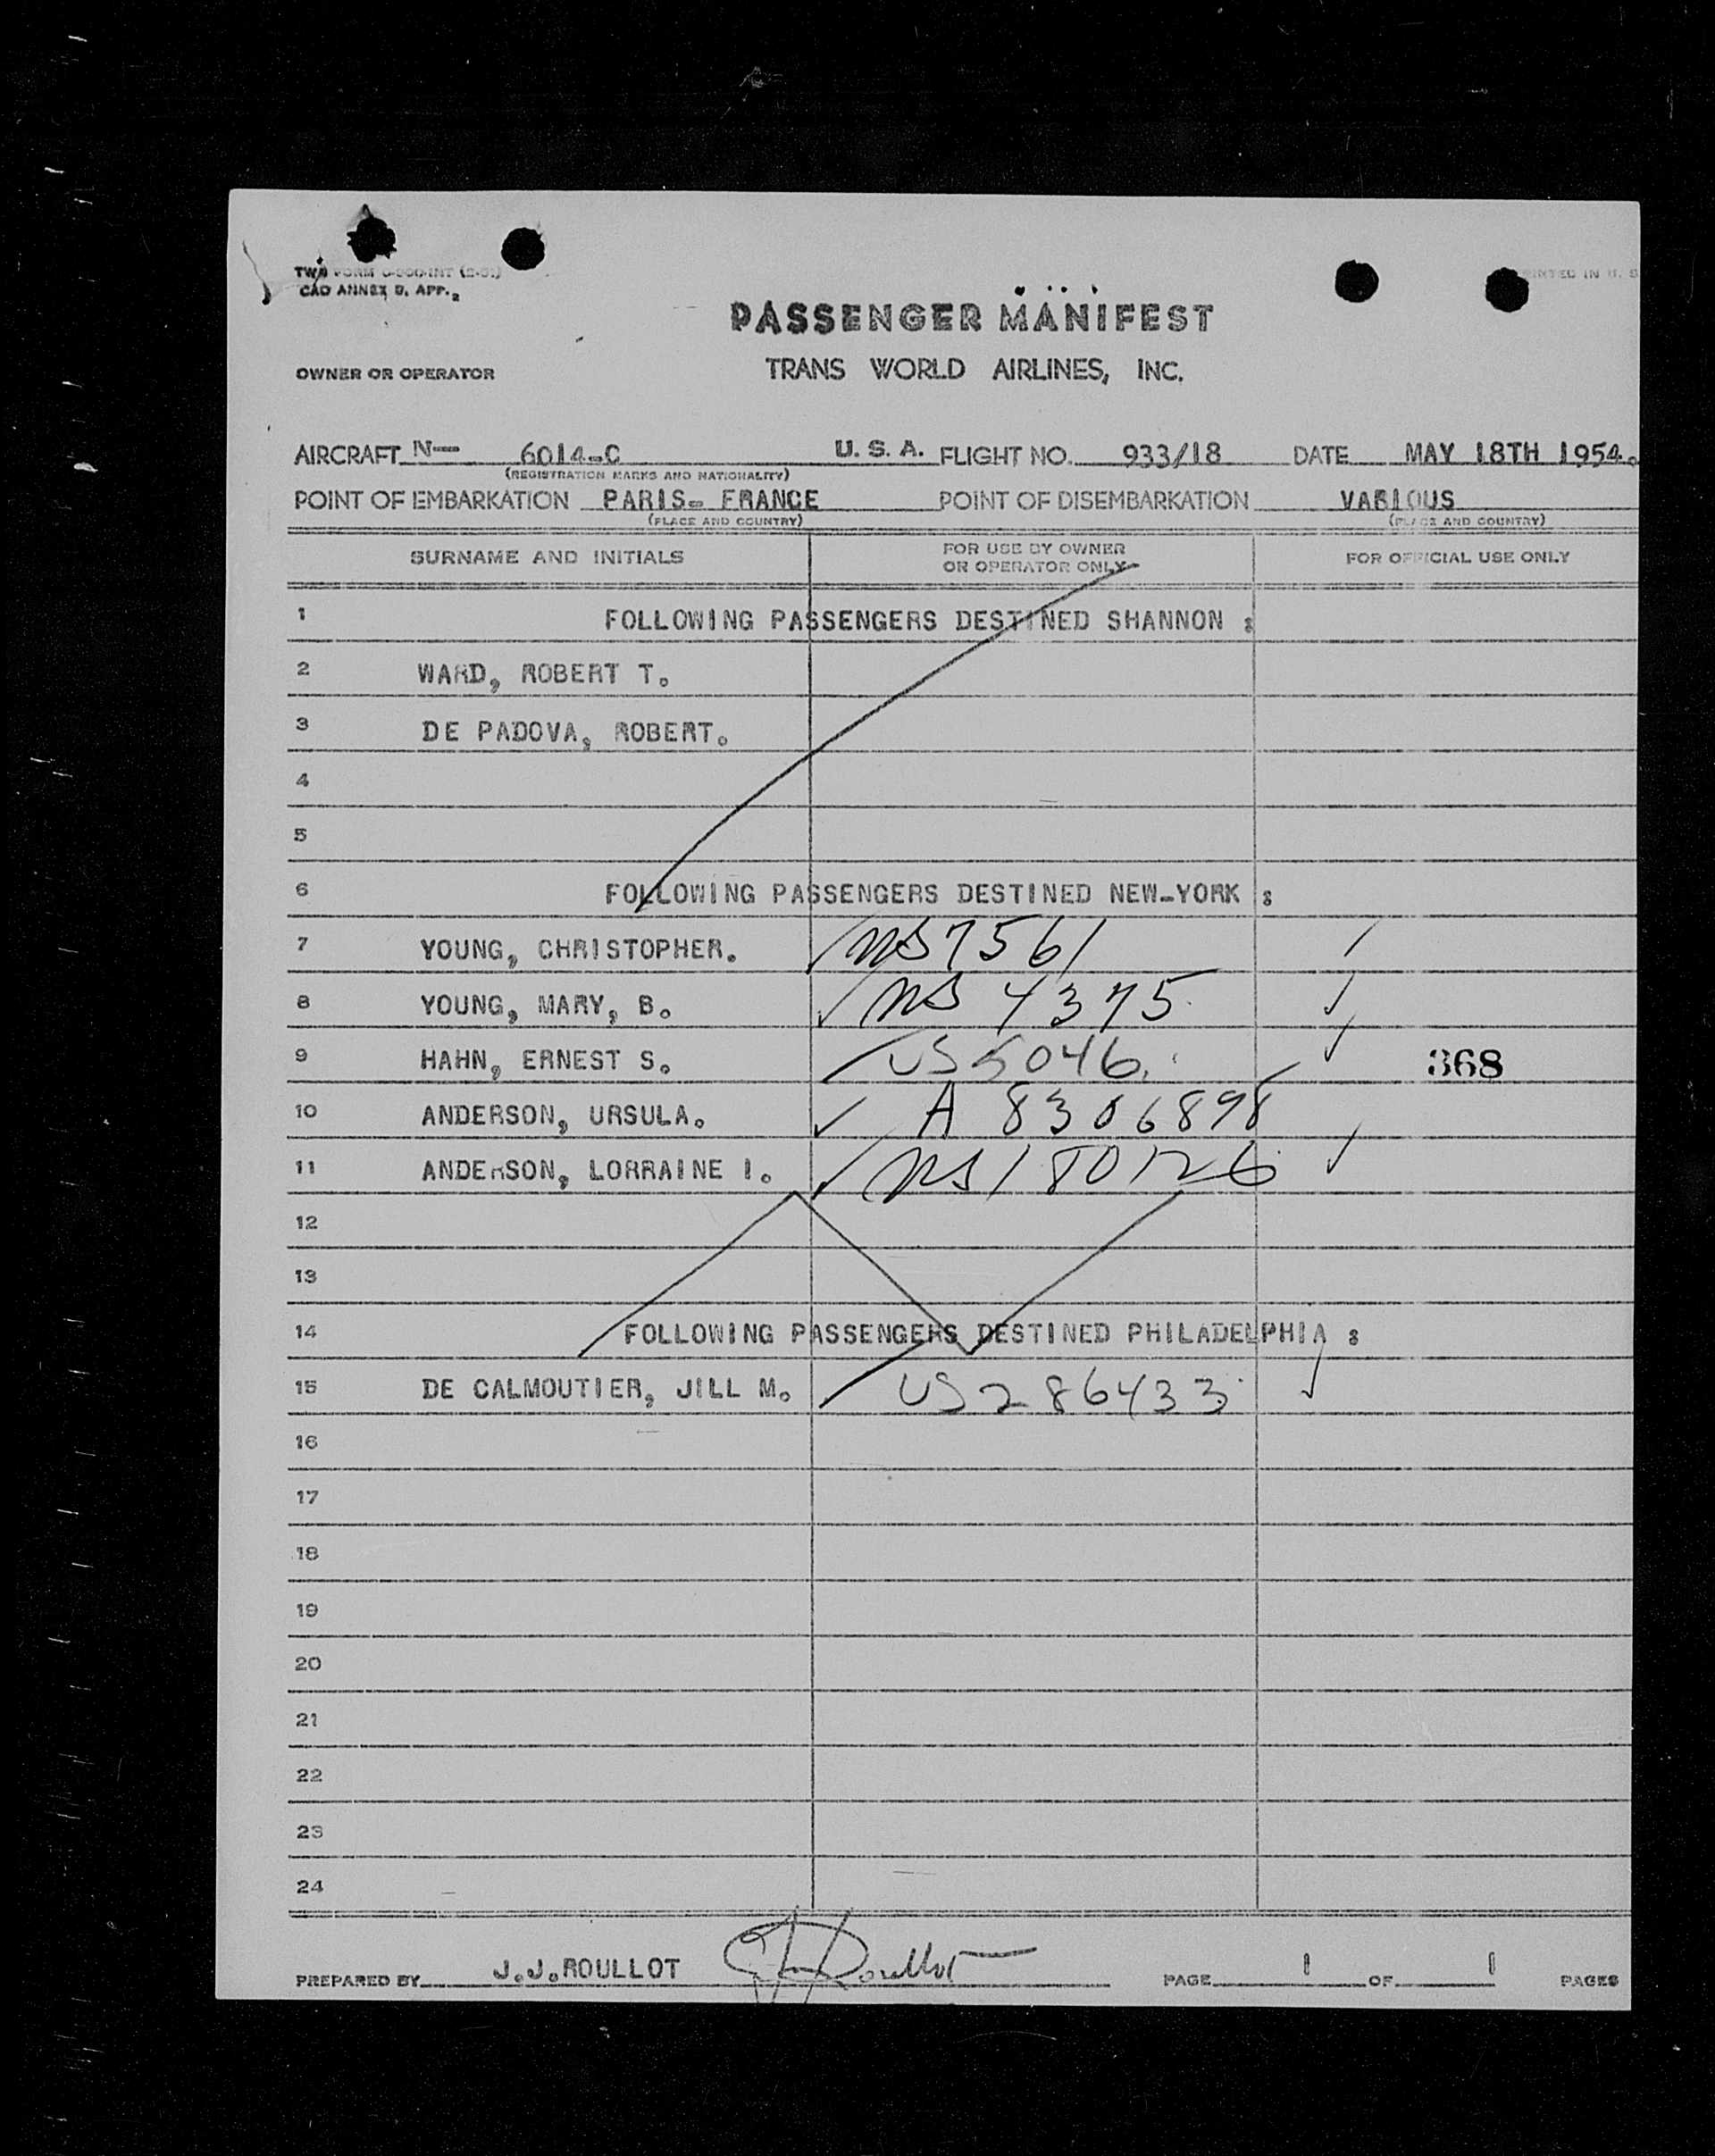 TWA FORM
CAO ANNEX 9, APP. 2
PRINTED IN U. S
PASSENGER MANIFEST
OWNER OR OPERATOR TRANS WORLD AIRLINES, INC.
AIRCRAFT N— 6014-C U. S. A. FLIGHT NO. 933/18 DATE MAY 18TH 1954.
(REGISTRATION MARKS AND NATIONALITY)
POINT OF EMBARKATION PARIS- FRANCE POINT OF DISEMBARKATION VARIOUS
(PLACE AND COUNTRY) (PLACE AND COUNTRY)
SURNAME AND INITIALS FOR USE BY OWNER OR OPERATOR ONLY FOR OFFICIAL USE ONLY
1 FOLLOWING PASSENGERS DESTINED SHANNON :
2 WARD, ROBERT T.
3 DE PADOVA, ROBERT.
4
5
6 FOLLOWING PASSENGERS DESTINED NEW-YORK :
7 YOUNG, CHRISTOPHER. ✓ 7561 ✓
8 YOUNG, MARY, B. ✓ 4375 ✓
9 HAHN, ERNEST S. ✓ US 5046. ✓ 368
10 ANDERSON, URSULA. ✓ A 8306898
11 ANDERSON, LORRAINE I. ✓ 180126 ✓
12
13
14 FOLLOWING PASSENGERS DESTINED PHILADELPHIA :
15 DE CALMOUTIER, JILL M. ✓ US 286433 ✓
16
17
18
19
20
21
22
23
24
PREPARED BY J.J.ROULLOT JJRoullot PAGE 1 OF 1 PAGES